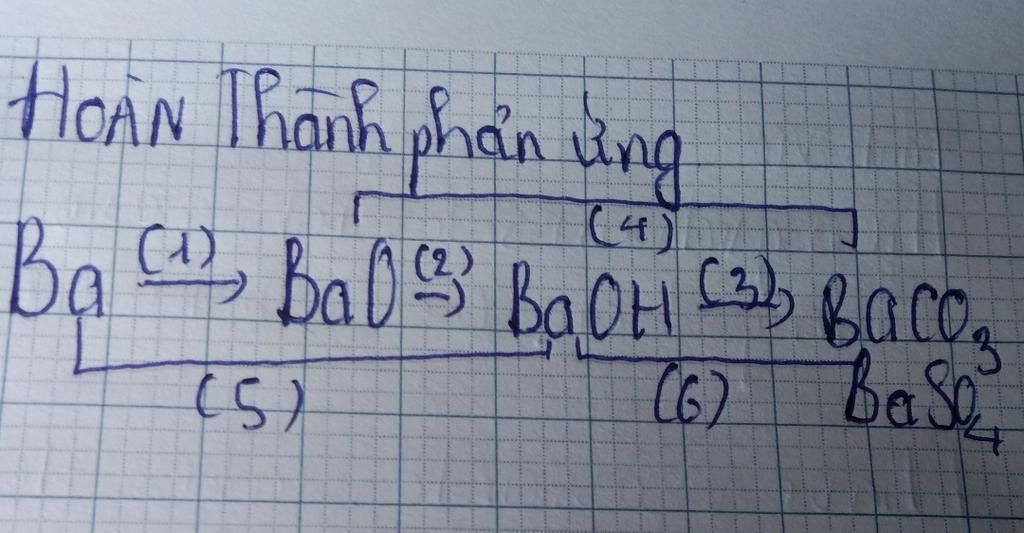 HOÀN Thành phản ứng
(4)
Ba (1)→ BaO (2)→ BaOH (3)→ BaCO3
(5) (6) BaSO4